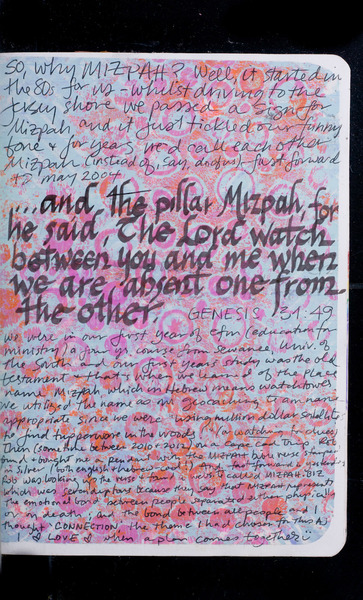 So, why MIZPAH? Well, it started in
the 80s for us - whilst driving to the
Jersey shore we passed a sign for
Mizpah, and it just tickled our funny
bone & for years we'd call each other
Mizpah (instead of, say, doofus) - fast forward
to May 2004
...and the pillar Mizpah, for
he said, The Lord watch
between you and me when
we are absent one from
the other.
GENESIS 31:49
We were in our first year of EfM (education for
ministry) a four yr. course from Sewanee, Univ. of
the South and our first year's study was the old
testament - that's of the place
name Mizpah which in Hebrew means watchtower
we utilized the name as our geocaching team name
appropriate since we were using million dollar satellites
to find tupperware in the woods (watching for clues)
Then (some time between 2010 & 2012) on a Cape Cod trip Rob
found & bought me a pendant with the MIZPAH bible verse stamped
in silver (both english & hebrew) And, fast forward & yesterday
Rob was looking up the verse & town & came to called MIZPAH.BIZ
which was serendipitous because they say that MIZPAH represents
the emotional bond between people separated either physically
or in death; And the bond between all people and I
thought CONNECTION, the theme I had chosen for this AJ
I LOVE when a plan comes together